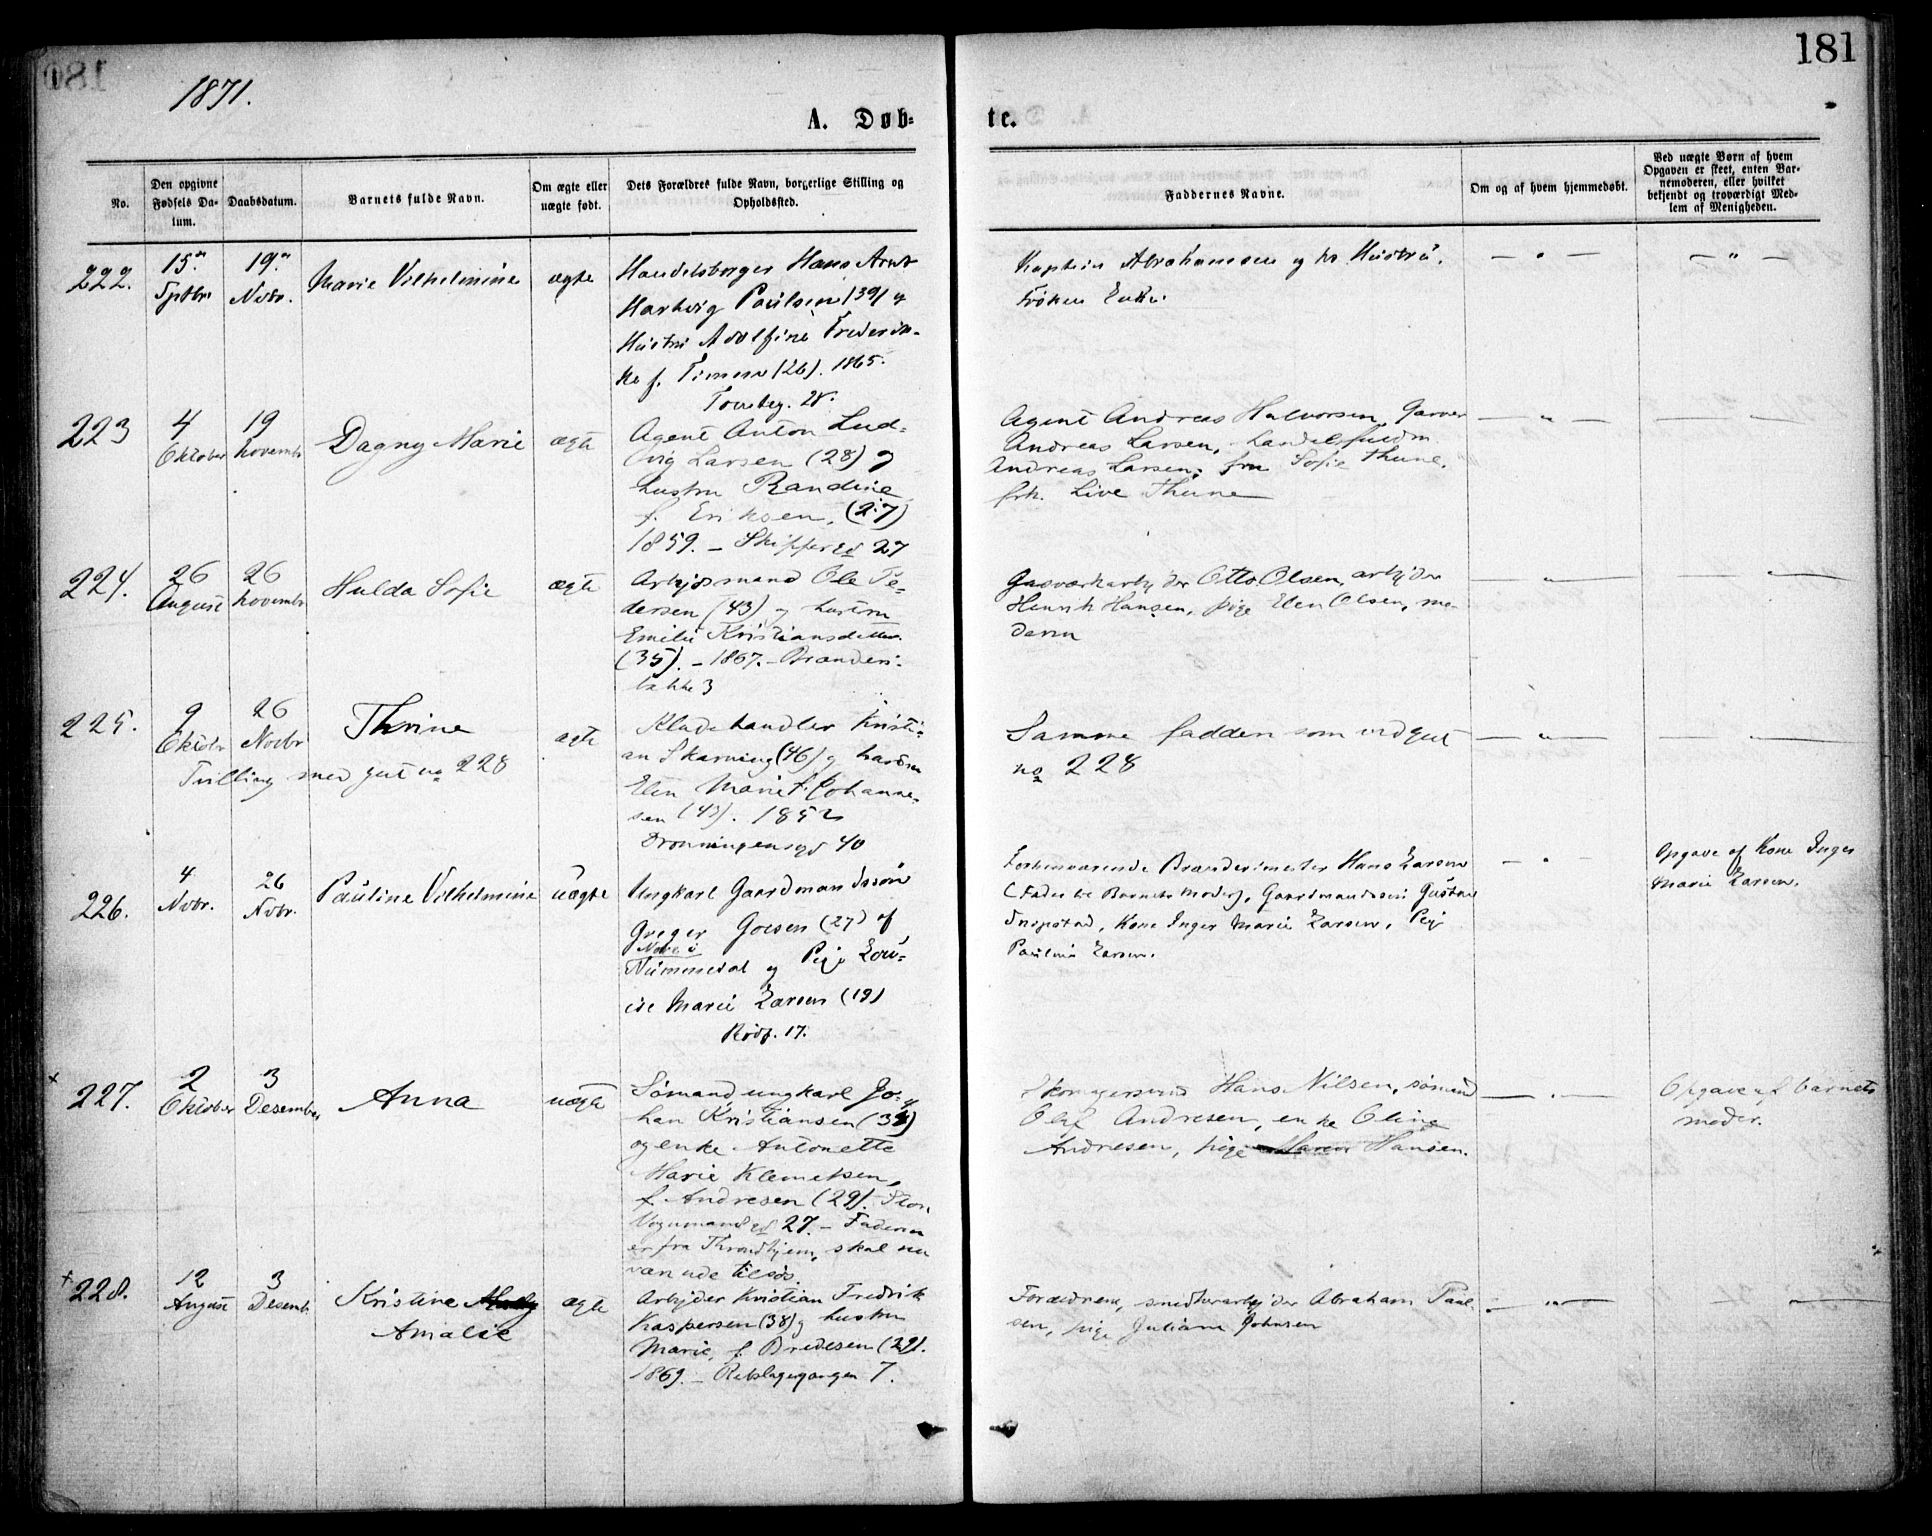 181
1871.
A. Døb-
te.
No.
Den opgivne
Fødsels Da-
tum.
Daabsdatum.
Barnets fulde Navn.
Om ægte eller
uægte født.
Dets Forældres fulde Navn, borgerlige Stilling og
Opholdssted.
Faddernes Navne.
Om og af hvem hjemmedøbt.
Ved uægte Børn af hvem
Opgaven er skeet, enten Bar-
nemoderen, eller hvilket
bekjendt og troværdigt Med-
lem af Menigheden.
222.
15de
Sptbr
19de
Novbr.
Marie Vilhelmine
ægte
Handelsborger Hans Arnt
Hartvig Paulsen (39) og
Hustru Adolfine Frederik-
ke f. (26). 1865.
28.
Kaptein Abrahamsen og hs Hustru.
Frøken
223
4
Oktober
19
Novembr
Dagny Marie
ægte
Agent Anton Lud-
vig Larsen (28) og
hustru Randine
f. Eriksen, (27)
1859. – Skippergd 27
Agent Andreas Halvorsen, Garver
Andreas Larsen, handelsfuldm.
Andreas Larsen, fru Sofie Thune,
frk. Live Thune
224.
26
August
26
Novembr
Hulda Sofie
ægte
Arbejdsmand Ole Pe-
dersen (43) og hustru
Emilie Kristiansdatter
(35). – 1867. – Brænderi-
bakke 3
Gasværkarbejder Otto Olsen, arbejder
Henrik Hansen, pige Elen Olsen, mo-
deren
225.
9
Oktobr
26
Novbr
Thrine
ægte
Tvilling med gut no 228
Kladehandler Kristi-
an Skarning (46) og hustru
Elen Marie f. Johanne-
sen (43). 1852
Dronningensgd 40
Samme faddere som ved gut
no 228
226.
4
Novbr.
26
Novbr.
Pauline Vilhelmine
uægte
Ungkarl Gaardmandssøn
Greger Goesen (27) af
Nore i
Nummedal og Pige Lou-
ise Marie Larsen (19)
Rødf. 17.
Forhenværende Brænderimester Hans Larsen
(Fader til Barnets Moder), Gaardmandssøn Gustav
, Kone Inger Marie Larsen, Pige
Pauline Larsen.
Opgave af Kone Inger
Marie Larsen.
227.
2
Oktober
3
Desember
Anna
uægte
Sømand, ungkarl Jo-
han Kristiansen (34)
og enke Antonette
Marie Klemetsen,
f. Andresen (29). Stor
Vognmandsgd 27. – Faderen
er fra Throndhjem, skal nu
være ude tilsøs.
Skomagersvend Hans Nilsen, sømand
Olaf Andresen, enke Oline
Andresen, pige Maren Hansen.
Opgave af barnets
moder.
228.
12
August
3
Desemb.
Kristine
Amalie
ægte
Arbejder Kristian Fredrik
Kaspersen (38) og hustru
Marie, f. Bredesen (29).
1869. – Rebslagergangen 7.
Forældrene, smedverarbejder Abraham Paul-
sen, pige Juliane Johnsen